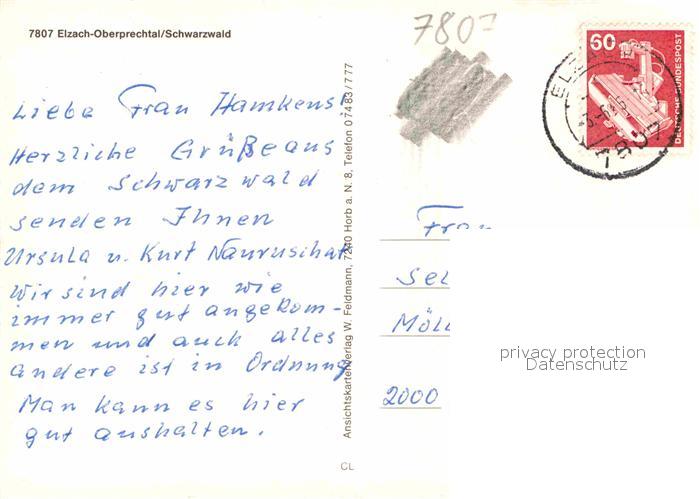 7807 Elzach-Oberprechtal/Schwarzwald
Liebe Frau Hamkens!
Herzliche Grüße aus
dem Schwarzwald
senden Ihnen
Ursula u. Kurt
Wir sind hier wie
immer gut angekom-
men und auch alles
andere ist in Ordnung
Man kann es hier
gut aushalten.
Ansichtskartenverlag W. Feldmann, 7240 Horb a. N. 8, Telefon 07483/777
CL
7807
60
DEUTSCHE BUNDESPOST
7807
Frau
Sel
Möll
2000
privacy protection
Datenschutz